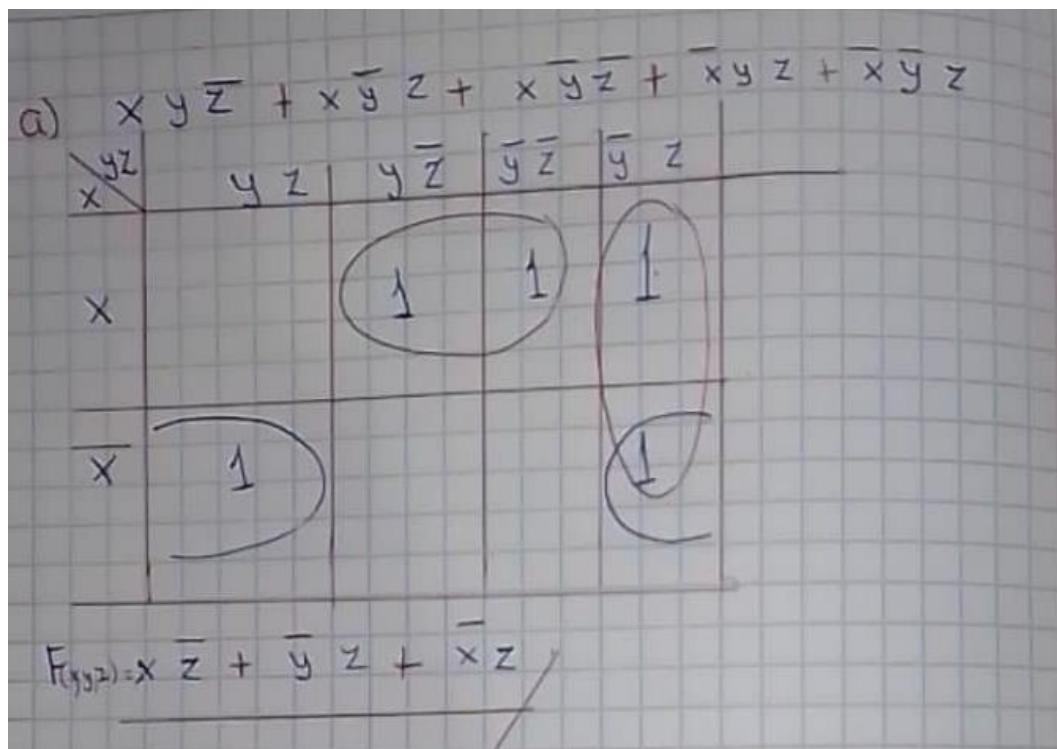 a) x y z̅ + x y̅ z + x y̅ z̅ + x̅ y z + x̅ y̅ z
x \ yz | y z | y z̅ | y̅ z̅ | y̅ z
x | | 1 | 1 | 1
x̅ | 1 | | | 1
F(x,y,z) = x z̅ + y̅ z + x̅ z